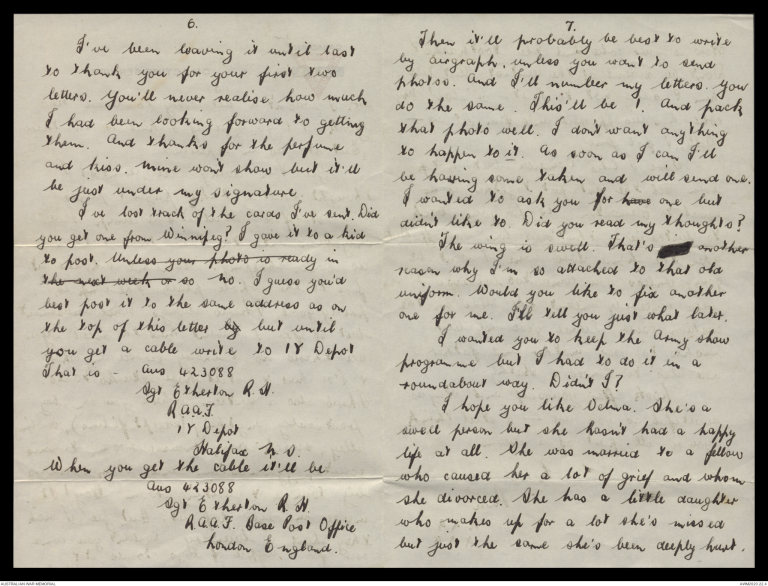 6.
I've been leaving it until last
to thank you for your first two
letters. You'll never realise how much
I had been looking forward to getting
them. And thanks for the perfume
and kiss. Mine won't show but it'll
be just under my signature.
I've lost track of the cards I've sent. Did
you get one from Winnipeg? I gave it to a kid
to post. Unless your photo is ready in
the next week or so no. I guess you'd
best post it to the same address as on
the top of this letter but until
you get a cable write to 1Y Depot
That is - Aus 423088
Sgt Etherton R. H.
R.A.A.F.
1Y Depot
Halifax N. S.
When you get the cable it'll be
Aus 423088
Sgt Etherton R. H.
R.A.A.F. Base Post Office
London England.
7.
Then it'll probably be best to write
by airgraph, unless you want to send
photos. And I'll number my letters. You
do the same. This'll be 1. And pack
that photo well. I don't want anything
to happen to it. As soon as I can I'll
be having some taken and will send one.
I wanted to ask you for have one but
didn't like to. Did you read my thoughts?
The wing is swell. That's another
reason why I'm so attached to that old
uniform. Would you like to fix another
one for me. I'll tell you just what later.
I wanted you to keep the Army show
programme but I had to do it in a
roundabout way. Didn't I?
I hope you like Delma. She's a
swell person but she hasn't had a happy
life at all. She was married to a fellow
who caused her a lot of grief and whom
she divorced. She has a little daughter
who makes up for a lot she's missed
but just the same she's been deeply hurt.
AUSTRALIAN WAR MEMORIAL